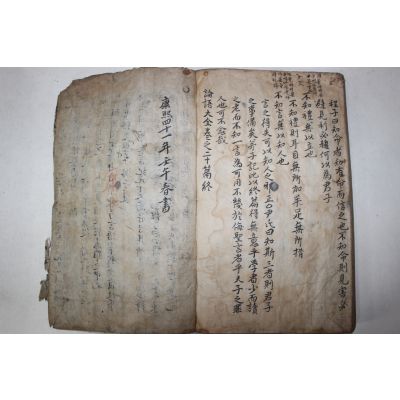 程子曰知命者知有命而信之也不知命則見害必
避見利必趨何以爲君子
不知禮無以立也
不知禮則耳目無所加手足無所措
不知言無以知人也
言之得失可以知人之邪正○尹氏曰知斯三者則君子
之事備矣弟子記此以終篇得無意乎學者少而讀
之老而不知一言爲可用不幾於侮聖言者乎夫子之罪
人也可不念哉
論語大全卷之二十篇終
康熙四十一年壬午春書